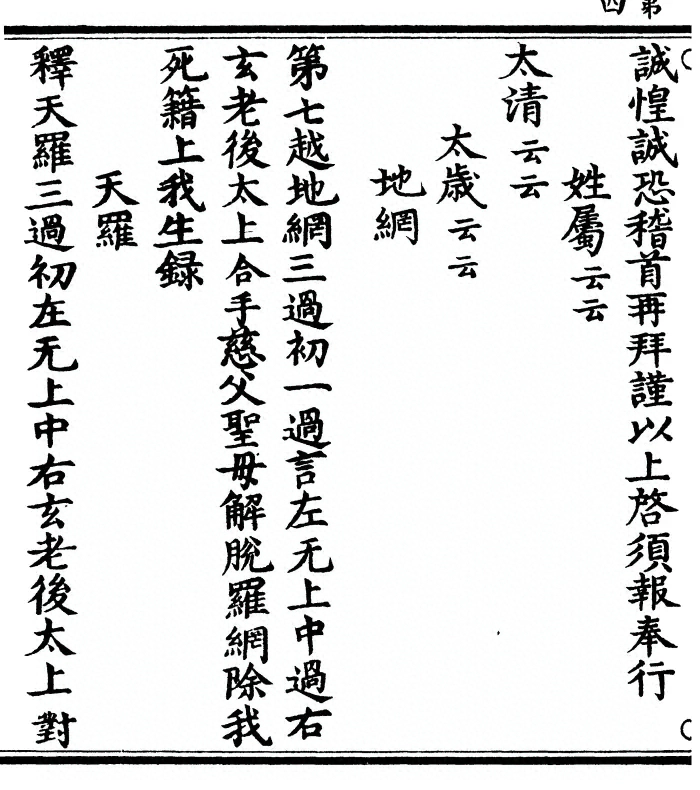 第四
誠惶誠恐稽首再拜謹以上啓須報奉行
姓屬云云
太清云云
太歲云云
地網
第七越地網三過初一過言左无上中過右
玄老後太上合手慈父聖母解脫羅網除我
死籍上我生録
天羅
釋天羅三過初左无上中右玄老後太上對